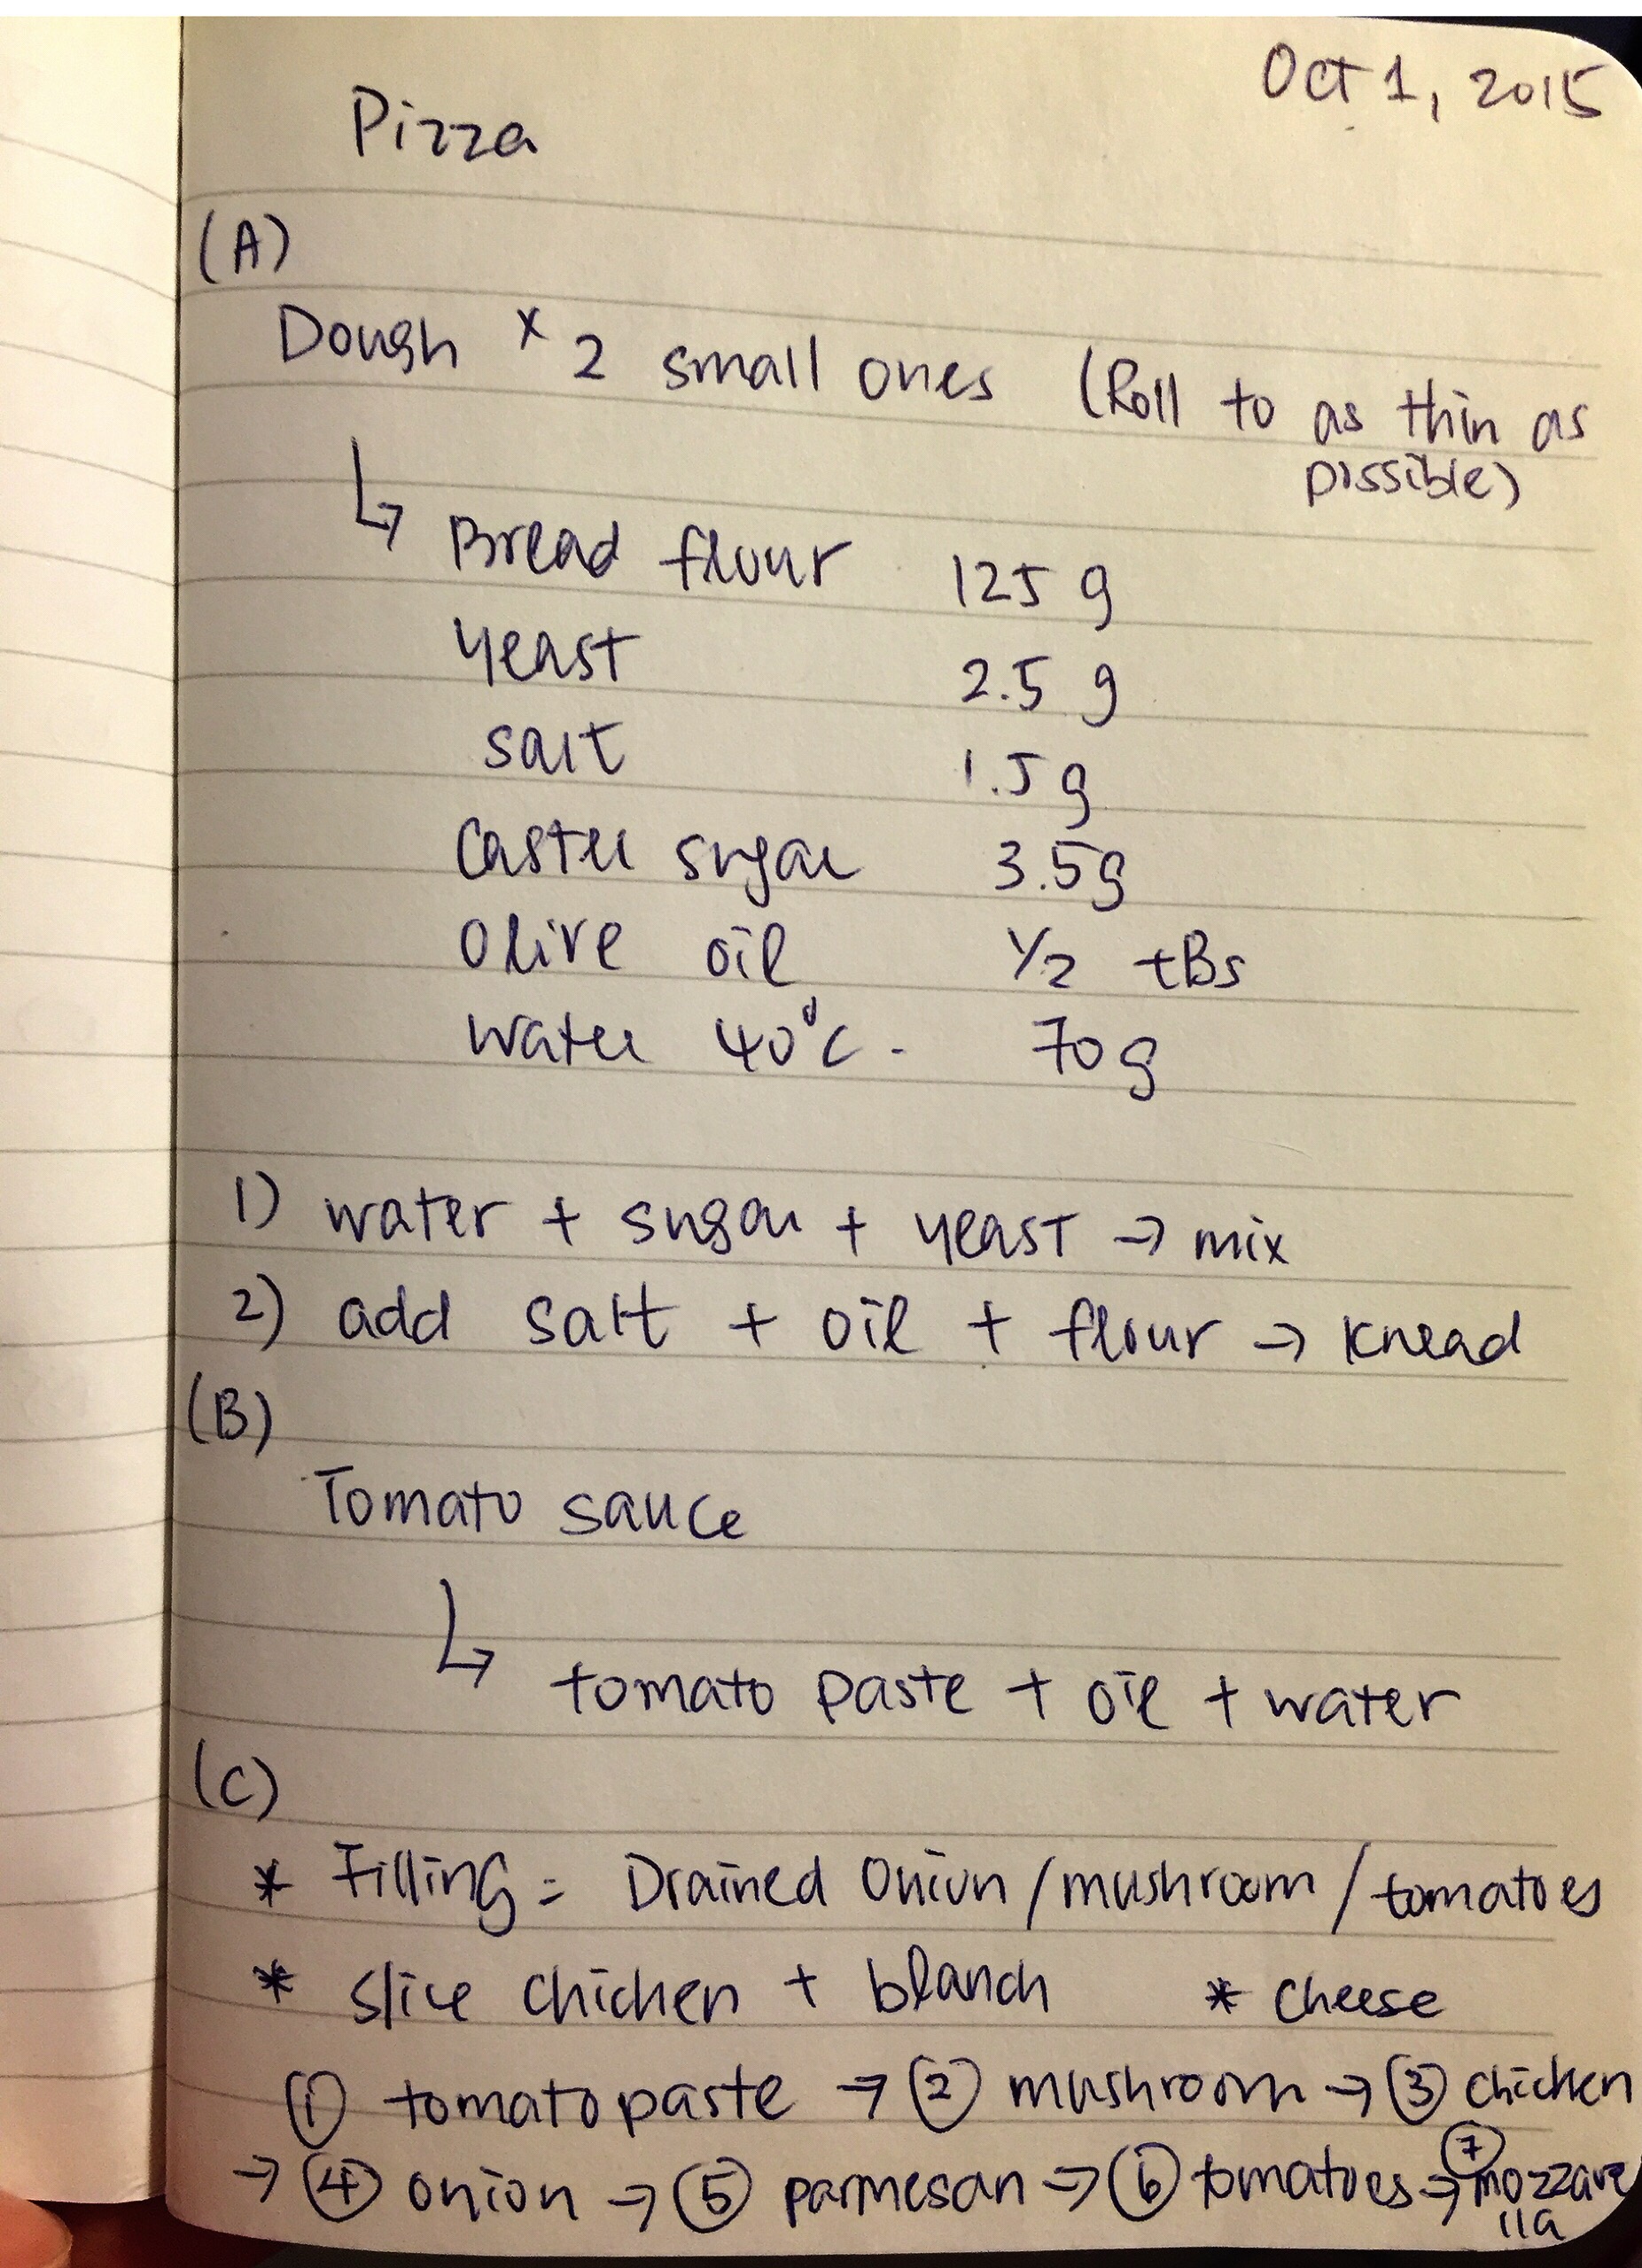 Oct 1, 2015
Pizza
(A)
Dough x 2 small ones (Roll to as thin as
possible)
↳ Bread flour 125 g
yeast 2.5 g
salt 1.5 g
Caster sugar 3.5g
Olive oil 1/2 tBs
Water 40°C. 70g
1) water + sugar + yeast → mix
2) add salt + oil + flour → knead
(B)
Tomato sauce
↳ tomato paste + oil + water
(C)
* Filling = Drained Onion / mushroom / tomatoes
* slice chicken + blanch * cheese
① tomato paste → ② mushroom → ③ chicken
→ ④ onion → ⑤ parmesan → ⑥ tomatoes → ⑦ mozzare
lla